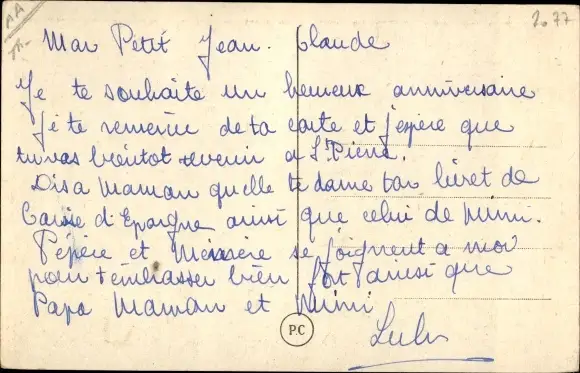 AA
2.077
Mon Petit Jean. Claude
Je te souhaite un heureux anniversaire
Je te remercie de ta carte et j'espère que
tu vas bientot revenir a St Pierre.
Dis a Maman qu'elle te donne ton livret de
Caisse d'Epargne ainsi que celui de Mimi.
Pépère et Mémère se joignent a moi
pour t'embrasser bien fort ainsi que
Papa Maman et Mimi
P.C
Lulu